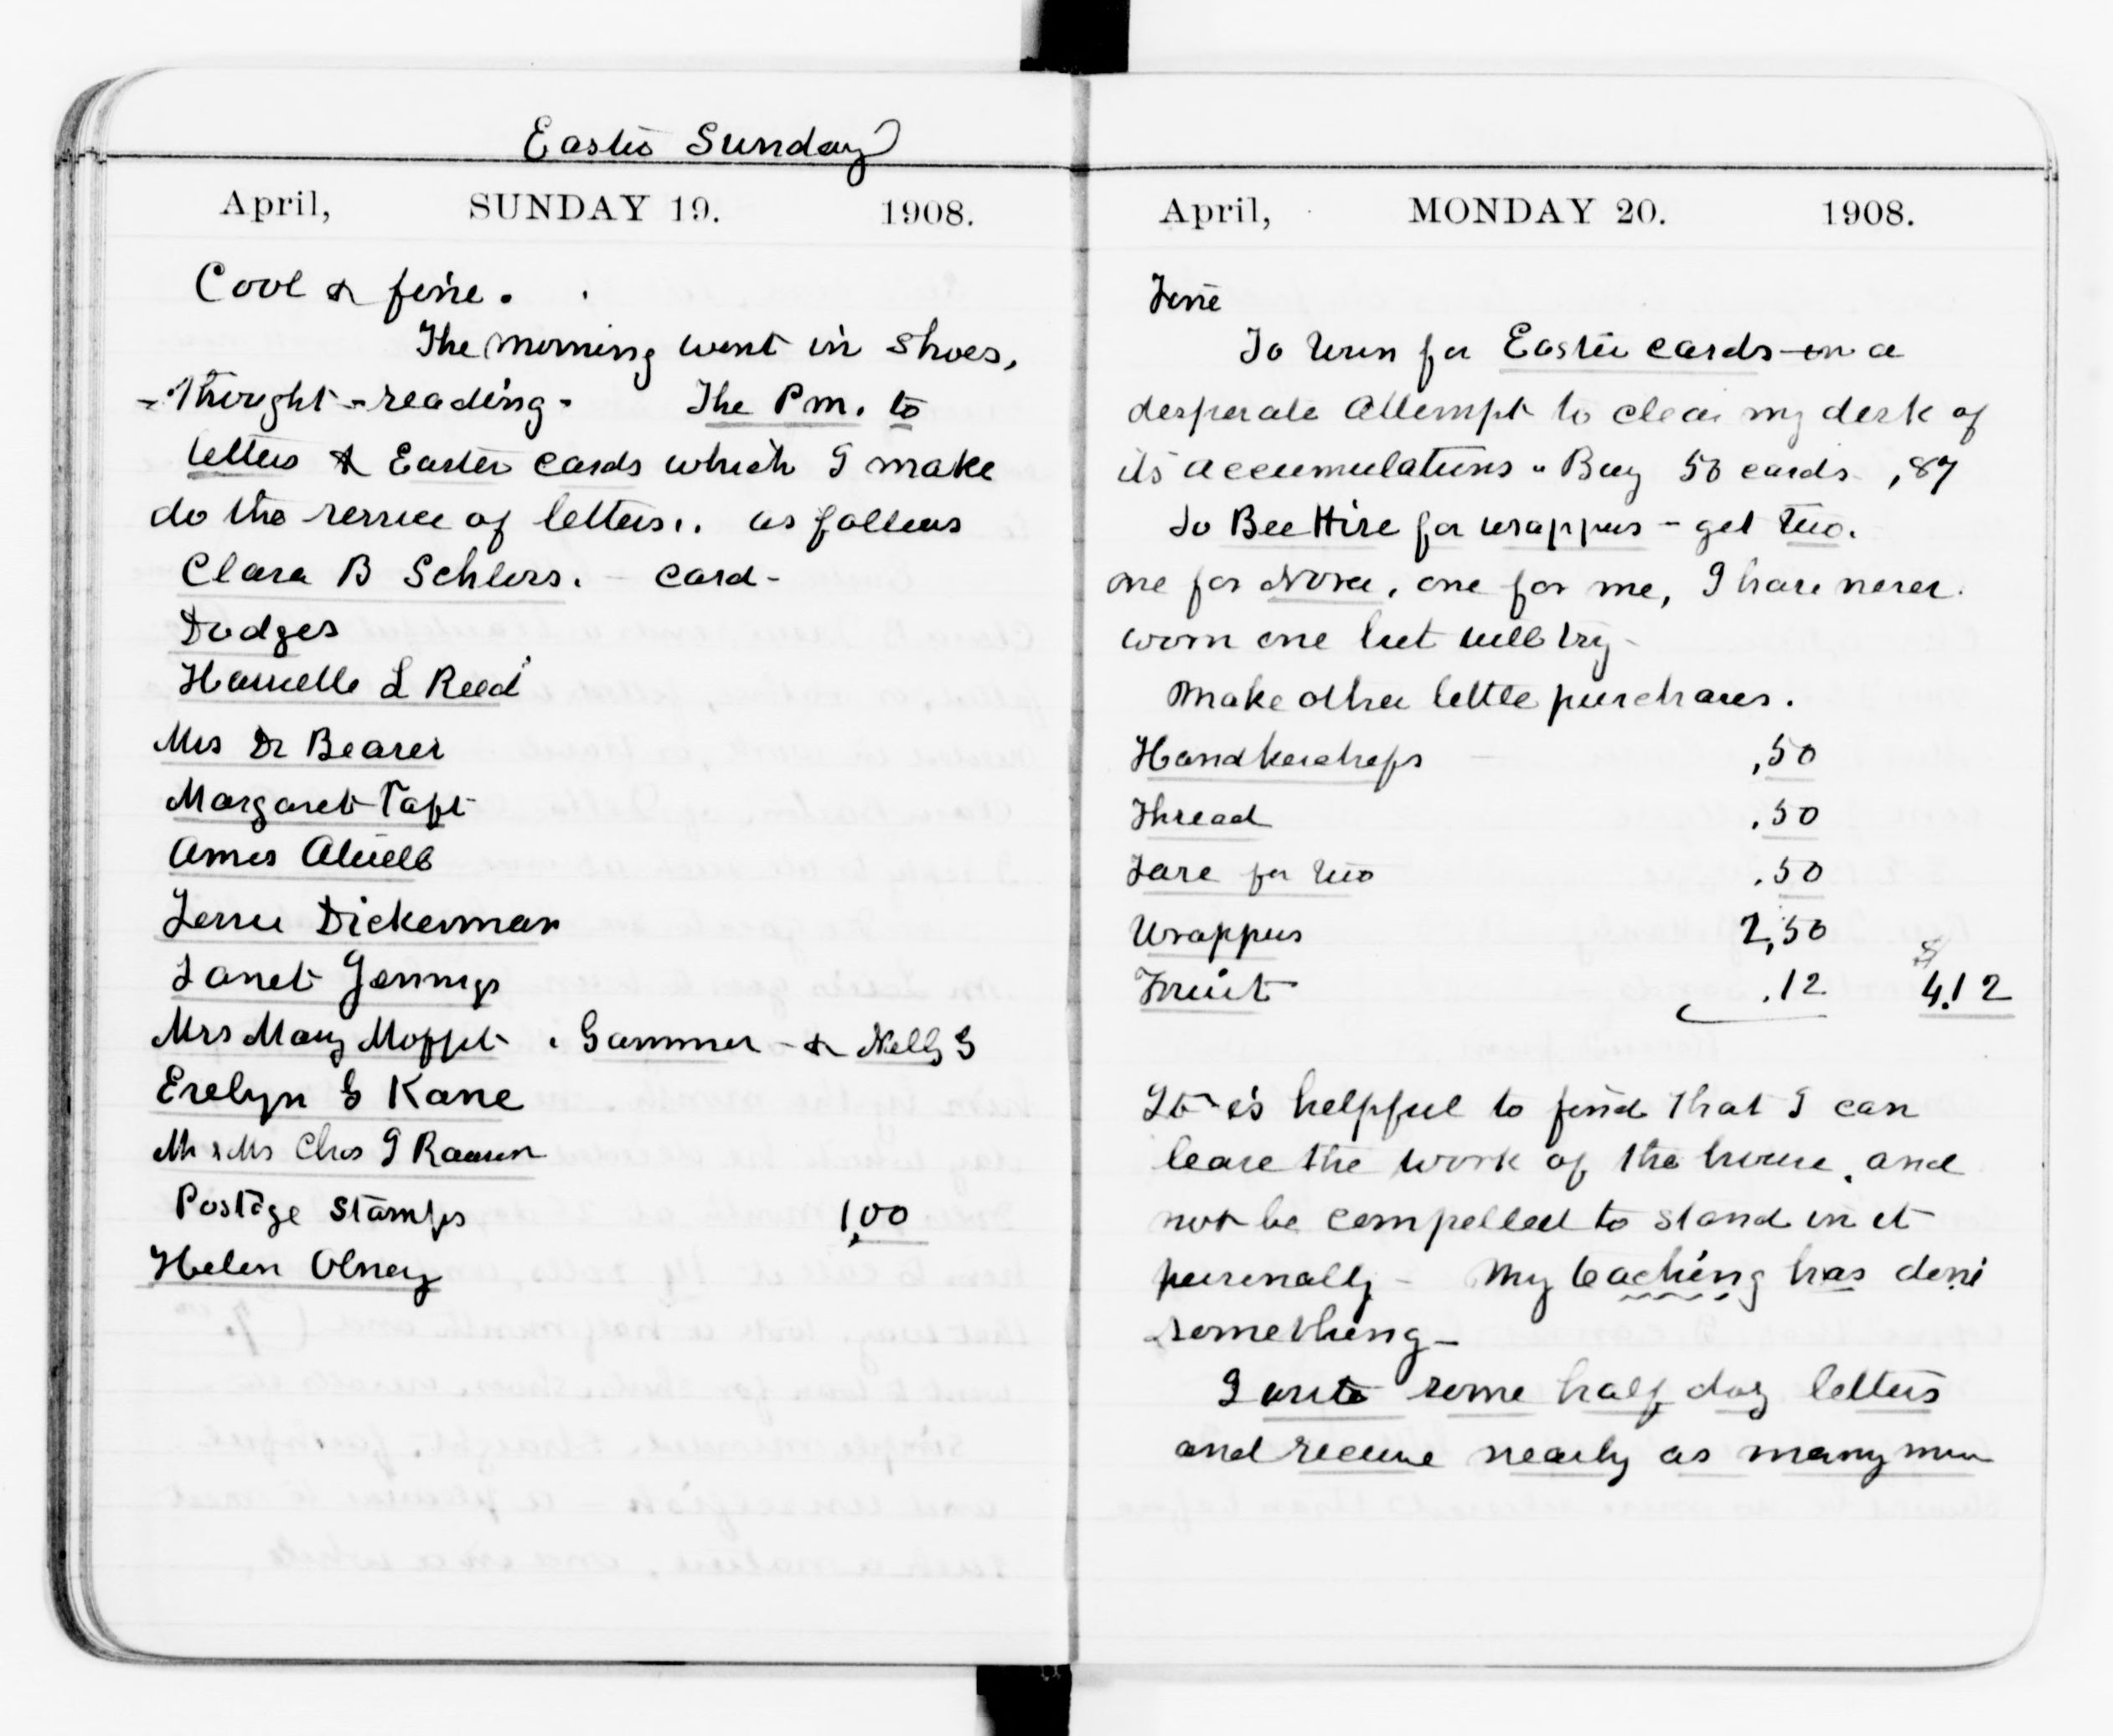 Easter Sunday
April, SUNDAY 19. 1908.
Cool & fine.
The morning went in shoes,
- thought - reading - The P m. to
letters & Easter cards which I make
do the service of letters.. as follows
Clara B Schlers. card -
Dodges
Harriette L Reed
Mrs Dr Beaver
Margaret Taft
Ames Atwell
Janet Jennings
Dickerman
Mrs Mary Moffet. Gammer & Nelly G
Evelyn G Kane
Mr & Mrs Chas G
Postage stamps 1,00
Helen Olney
April, MONDAY 20. 1908.
Fine
To town for Easter cards - in a
desperate attempt to clear my desk of
its accumulations - Buy 50 cards ,87
To Bee Hive for wrappers - get two.
one for Nora, one for me, I have never
worn one but will try -
Make other little purchases.
Handkerchiefs ,50
Thread .50
Fare for two .50
Wrappers 2,50
Fruit .12 $ 4.12
It is helpful to find that I can
leave the work of the house, and
not be compelled to stand in it
personally - My teaching has done
something -
I write some half day letters
and receive nearly as many new